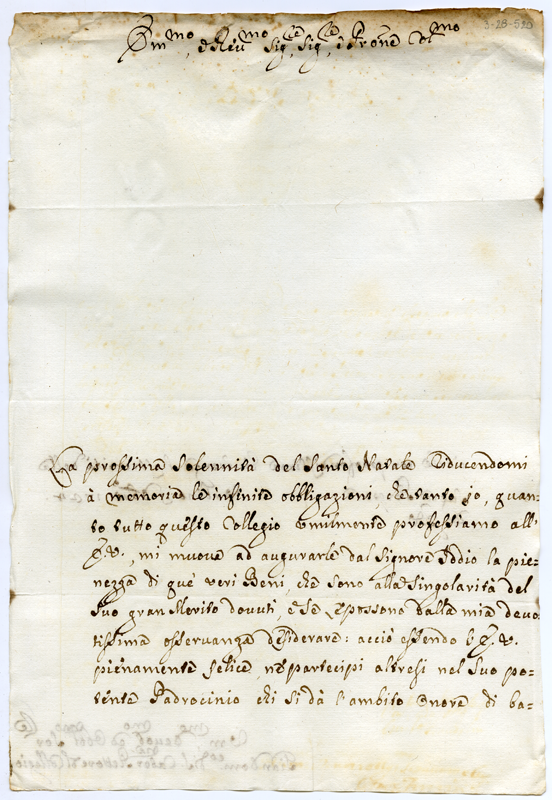 3-28-520
Em.mo, e Rev.mo Sig.re, Sig.re, e Prone Col.mo
La prossima Solennità del Santo Natale riducendomi
à memoria le infinite obbligazioni, che tanto io, quan-
to tutto questo Collegio umilmente professiamo all'
E. V., mi muove ad augurarle dal Signore Iddio la pie-
nezza di que' veri Beni, che sono alla Singolarità del
Suo gran Merito dovuti, e Se le possono dalla mia devo-
tissima osservanza desiderare: acciò essendo l'E. V.
pienamente felice, ne partecipi altresì nel Suo po-
tente Padrocinio chi si dà l'ambito Onore di ba-